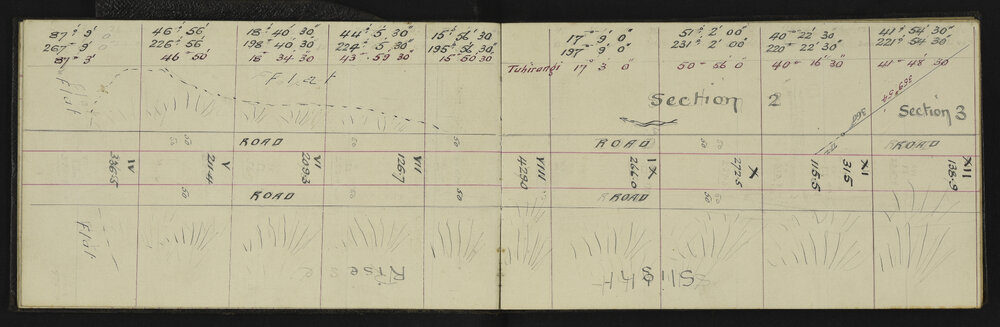 87° 9' 0 46° 56' 18° 40' 30" 44° 5' 30" 15° 56' 30 17° 9' 0" 51° 2' 00" 40° 22' 30" 41° 54' 30"
267° 9' 0 226° 56' 198° 40' 30 224° 5' 30" 195° 56' 30 197° 9' 0" 231° 2' 00 220° 22' 30" 221° 54' 30"
87° 3' 46° 50' 18° 34' 30 43° 59' 30 15° 50' 30 Tuhirangi 17° 3' 0" 50° 56' 0" 40° 16' 30" 41° 48' 30
Flat
Flat
Section 2
Section 3
369.54
360
ROAD 50 50 ROAD 50 ROAD
336.5 IV 214.4 V 209.3 VI 126.7 VII 429.0 VIII 266.0 IX 272.5 X 115.5 316 XI 138.9 XII
50 ROAD 50 50 ROAD 50
Flat
Rise
Slight